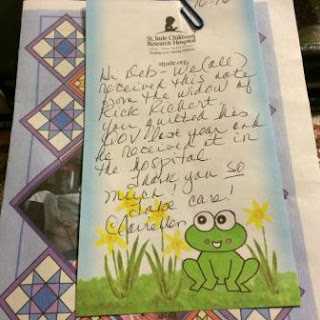 St. Jude Children's
Research Hospital
stjude.org
Hi Deb - We (all)
received this note
from the widow of
Rick Richert.
You quilted his
QOV last year and
he received it in
the hospital
Thank you so
much!
Take care!